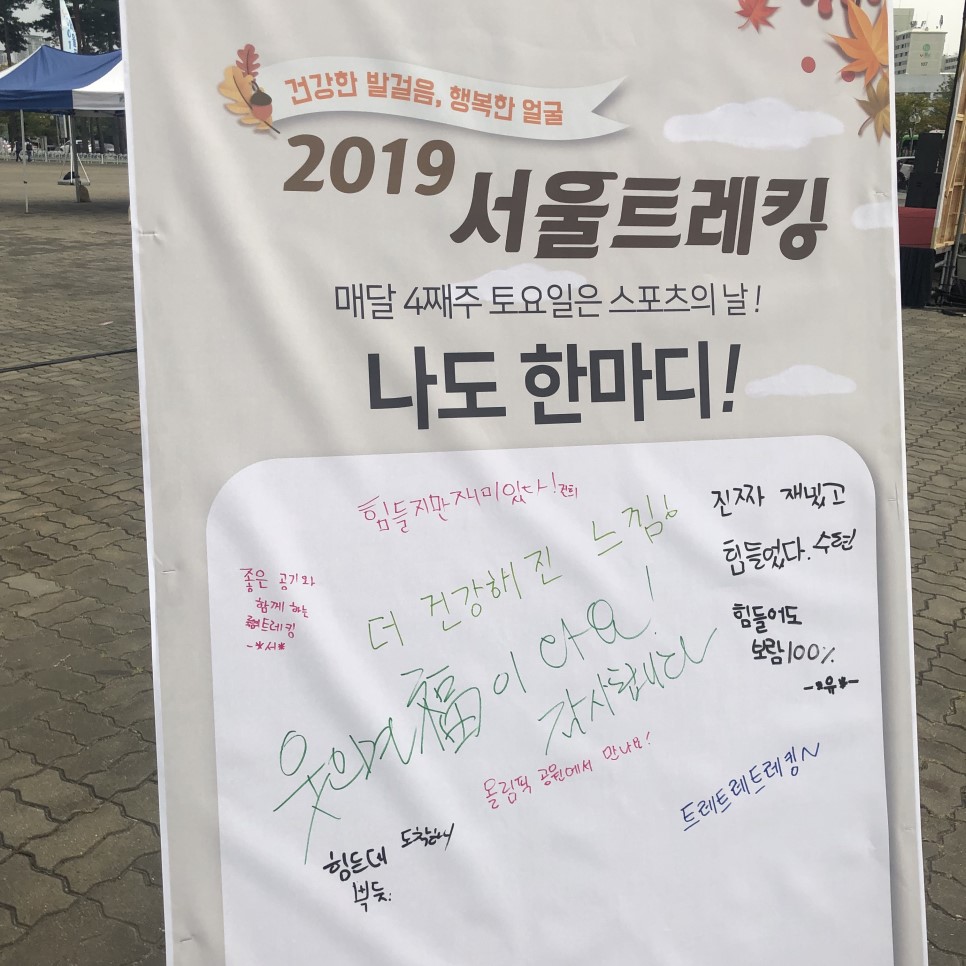 건강한 발걸음, 행복한 얼굴
2019 서울트레킹
매달 4째주 토요일은 스포츠의 날!
나도 한마디!
힘들지만 재미있다!
더 건강해진 느낌!
진짜 재밌고
힘들었다. 수현
좋은 공기와
함께 하는
트레킹
-*서*
힘들어도
보람100%
-*유*-
웃으면 福이 와요!
감사합니다
올림픽 공원에서 만나요!
트레트레트레킹~
힘든데
뿌듯.